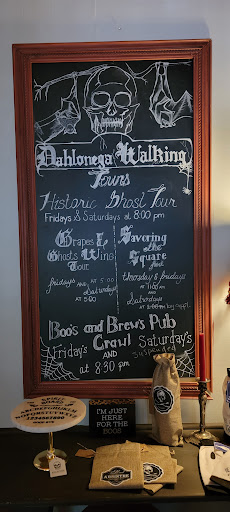 Dahlonega Walking
Tours
Historic Ghost Tour
Fridays & Saturdays at 8:00 pm
Grapes &
Ghosts Wine
Tour
fridays AND AT 5:00
Saturdays
AT 5:00
Savoring
the
Square
food
thursday & fridays
at 11:00 am
AND
Saturdays
by appt.
Boo's and Brews Pub
Crawl
Friday's AND Saturday's
at 8:30 pm
SPIRIT
BOARD
I'M JUST
HERE FOR
THE BOOS